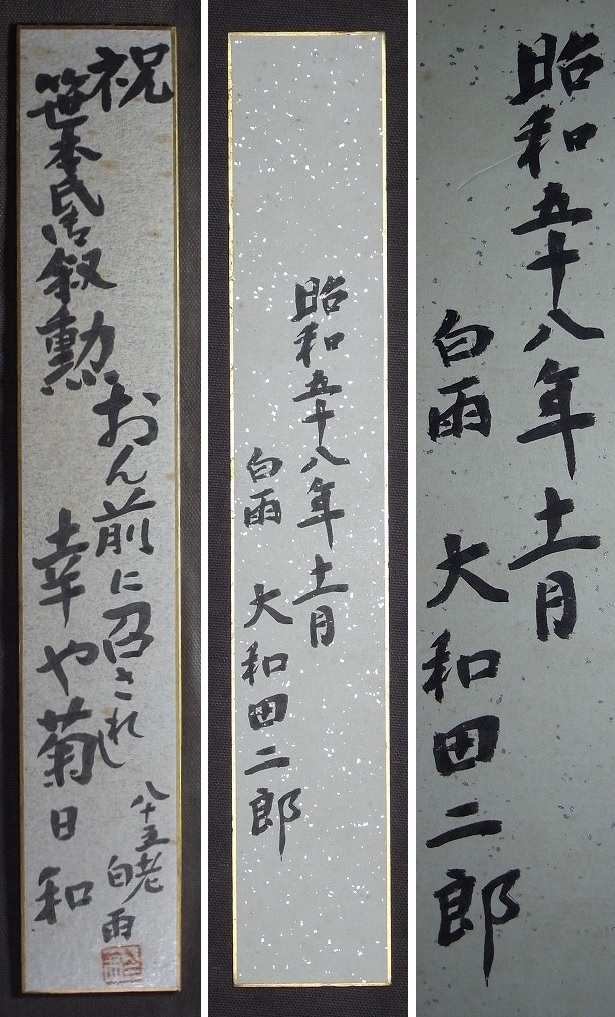 祝
笹本氏御叙勲
おん前に召されし
幸や菊日和
八十五老
白雨
昭和五十八年十一月
白雨 大和田二郎
昭和五十八年十一月
白雨 大和田二郎